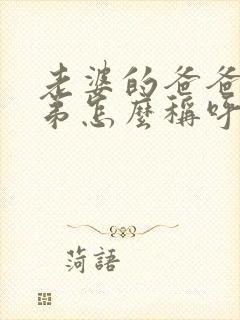 老婆的爸爸
弟怎麼稱呼
菏語